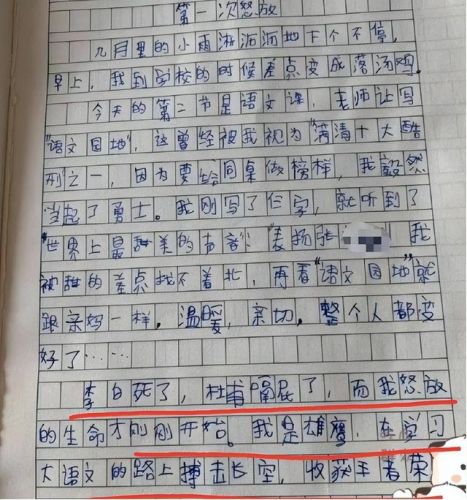 第一次怒放
九月里的小雨淅沥沥地下个不停，
早上，我到学校的时候差点变成落汤鸡。
今天的第二节是语文课，老师让写
“语文园地”，这曾经被我视为“满清十大酷
刑之一，因为要给同桌做榜样，我毅然
当起了勇士。我刚写了仨字，就听到了
“世界上最甜美的声音：“表扬张 我
被甜的差点找不着北，再看“语文园地”就
跟亲妈一样，温暖，亲切，整个人都变
好了……
李白死了，杜甫嗝屁了，而我怒放
的生命才刚刚开始。我是雄鹰，在学习
大语文的路上搏击长空，收获丰着荣